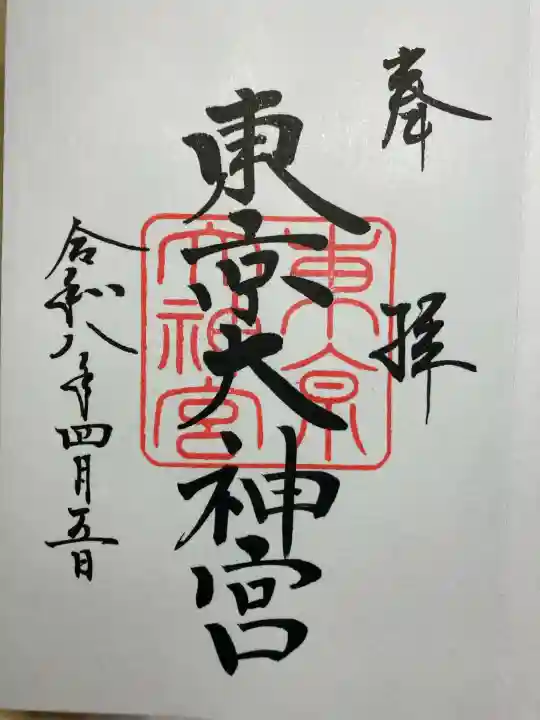 奉拝
東京大神宮
東京大神宮
令和八年四月五日